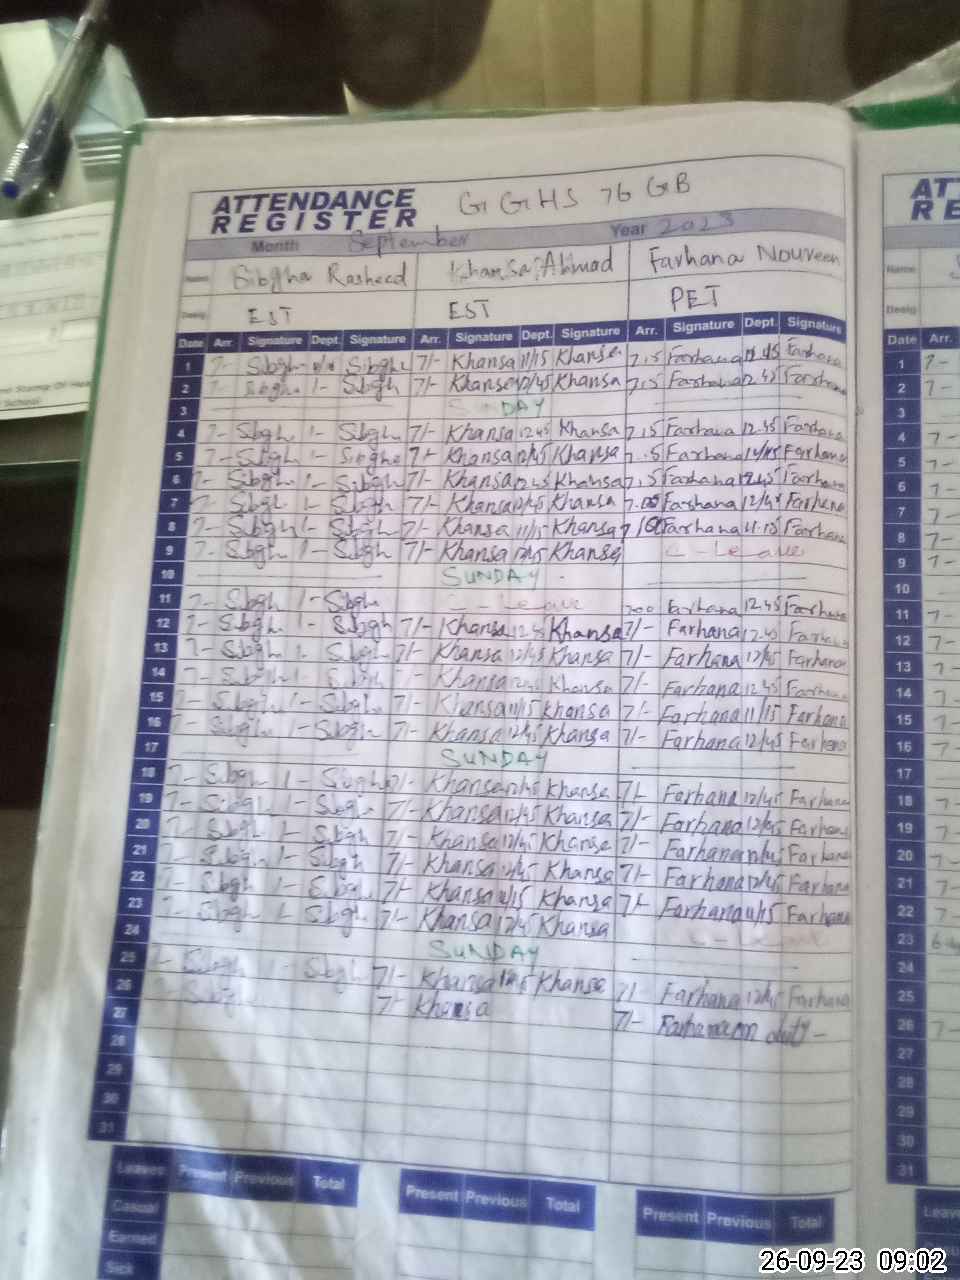 ATTENDANCE REGISTER GGHS 76 GB
Month September Year 2023
Name Sibgha Rasheed Khansa Ahmad Farhana Nourveen
Desig EST EST PET
Date Arr. Signature Dept. Signature Arr. Signature Dept. Signature Arr. Signature Dept. Signature
1 7- Sibgh Sibgh 7/- Khansa 11/15 Khansa 7.15 Farhana 12.45 Farhana
2 7- Sibgh 1- Sibgh 7/- Khansa 12/45 Khansa 7.15 Farhana 12.45 Farhana
3 SUNDAY
4 7- Sibgh 1- Sibgh 7/- Khansa 12.45 Khansa 7.15 Farhana 12.45 Farhana
5 7- Sibgh 1- Sibgha 7/- Khansa 12/45 Khansa 7.15 Farhana 12/45 Farhana
6 7- Sibgh 1- Sibgh 7/- Khansa 12.45 Khansa 7.15 Farhana 12.45 Farhana
7 7- Sibgh 1- Sibgh 7/- Khansa 12/45 Khansa 7.00 Farhana 12/45 Farhana
8 7- Sibgh 1- Sibgh 7/- Khansa 11/15 Khansa Farhana 11.15 Farhana
9 7- Sibgh 1- Sibgh 7/- Khansa 12/45 Khansa C-Leave
10 SUNDAY
11 7- Sibgh 1- Sibgh C-Leave 7.00 Farhana 12.45 Farhana
12 7- Sibgh 1- Sibgh 7/- Khansa 12.45 Khansa 7/- Farhana 12.45 Farhana
13 7- Sibgh 1- Sibgh 7/- Khansa 12/45 Khansa 7/- Farhana 12/45 Farhana
14 7- Sibgh 1- Sibgh 7/- Khansa 12/45 Khansa 7/- Farhana 12.45 Farhana
15 7- Sibgh 1- Sibgh 7/- Khansa 11/15 Khansa 7/- Farhana 11/15 Farhana
16 7- Sibgh 1- Sibgh 7/- Khansa 12/45 Khansa 7/- Farhana 12/45 Farhana
17 SUNDAY
18 7- Sibgh 1- Sibgh 7/- Khansa 12/45 Khansa 7/- Farhana 12/45 Farhana
19 7- Sibgh 1- Sibgh 7/- Khansa 12/45 Khansa 7/- Farhana 12/45 Farhana
20 7- Sibgh 1- Sibgh 7/- Khansa 12/45 Khansa 7/- Farhana 12/45 Farhana
21 7- Sibgh 1- Sibgh 7/- Khansa 12/45 Khansa 7/- Farhana 12/45 Farhana
22 7- Sibgh 1- Sibgh 7/- Khansa 11/15 Khansa 7/- Farhana 11/15 Farhana
23 7- Sibgh 1- Sibgh 7/- Khansa 12/45 Khansa C-Leave
24 SUNDAY
25 7- Sibgh 1- Sibgh 7/- Khansa 12/45 Khansa 7/- Farhana 12/45 Farhana
26 7- Sibgh 7/- Khansa 7/- Farhana on duty -
27
28
29
30
31
Leaves Present Previous Total Present Previous Total Present Previous Total
Casual
Earned
Sick
26-09-23 09:02